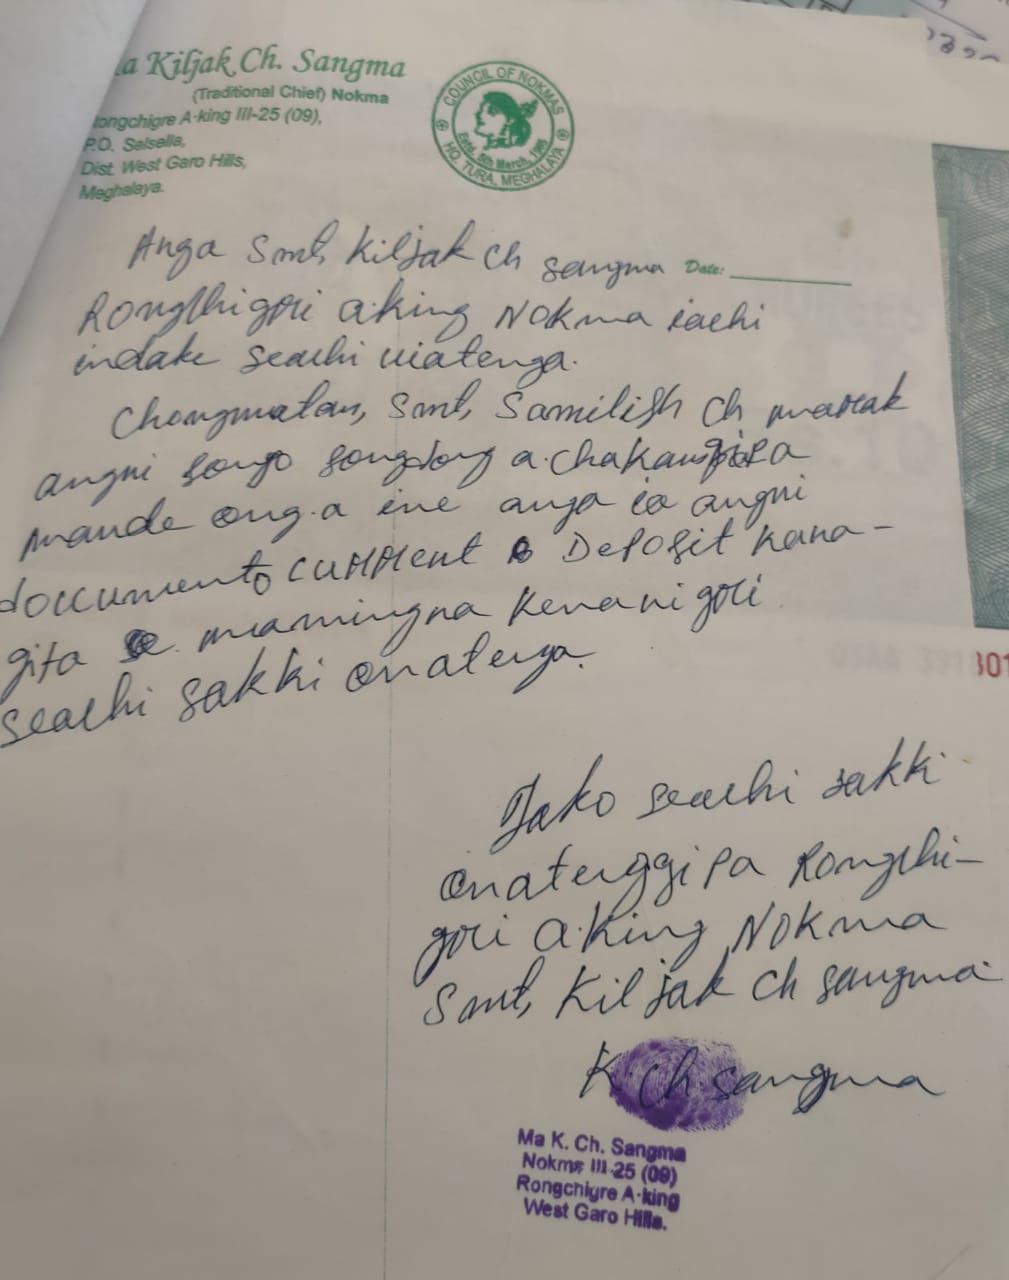 a Kiljak Ch. Sangma
(Traditional Chief) Nokma
Rongchigre A·king III-25 (09),
P.O. Selsella,
Dist. West Garo Hills,
Meghalaya.
COUNCIL OF NOKMAS
Estd. 8th March,
HQ. TURA, MEGHALAYA
Date:
Anga Smt, Kiljak Ch Sangma
Rongchigri a·king Nokma iachi
indake seachi uiatenga.
Chongmatan, Smt, Samilish Ch marak
angni songo songdong a·chakangipa
mande ong·a ine anga ia angni
document current Deposit kana-
gita mamingna kenanigri
seachi sakki onatenga.
Iako seachi sakki
onatenggipa Rongchi-
gri a·king Nokma
Smt, Kiljak Ch Sangma
K Ch Sangma
Ma K. Ch. Sangma
Nokma III-25 (09)
Rongchigre A·king
West Garo Hills.